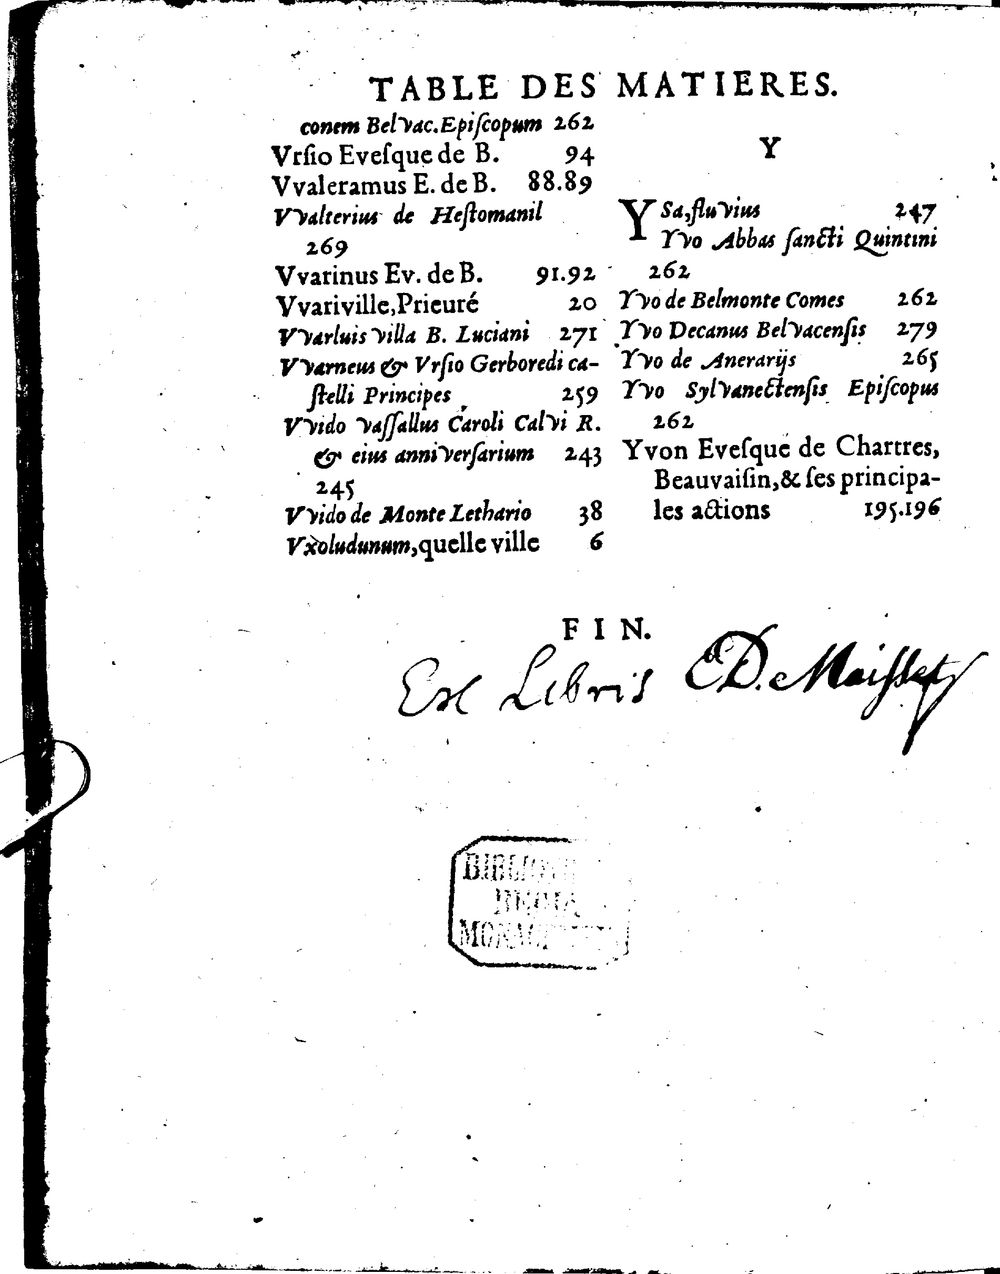 TABLE DES MATIERES.
conem Belvac. Episcopum 262
Vrsio Evesque de B. 94
Vvaleramus E. de B. 88.89
Vvalterius de Hestomanil
269
Vvarinus Ev. de B. 91.92
Vvariville, Prieuré 20
Vvarluis villa B. Luciani 271
Vvarneus & Vrsio Gerboredi ca-
stelli Principes 259
Vvido vassallus Caroli Calvi R.
& eius anniversarium 243
245
Vvido de Monte Lethario 38
Vxoludunum, quelle ville 6
Y
YSa, fluvius 247
Yvo Abbas sancti Quintini
262
Yvo de Belmonte Comes 262
Yvo Decanus Belvacensis 279
Yvo de Anerarijs 265
Yvo Sylvanectensis Episcopus
262
Yvon Evesque de Chartres,
Beauvaisin, & ses principa-
les actions 195.196
FIN.
Ex Libris D. Maisset